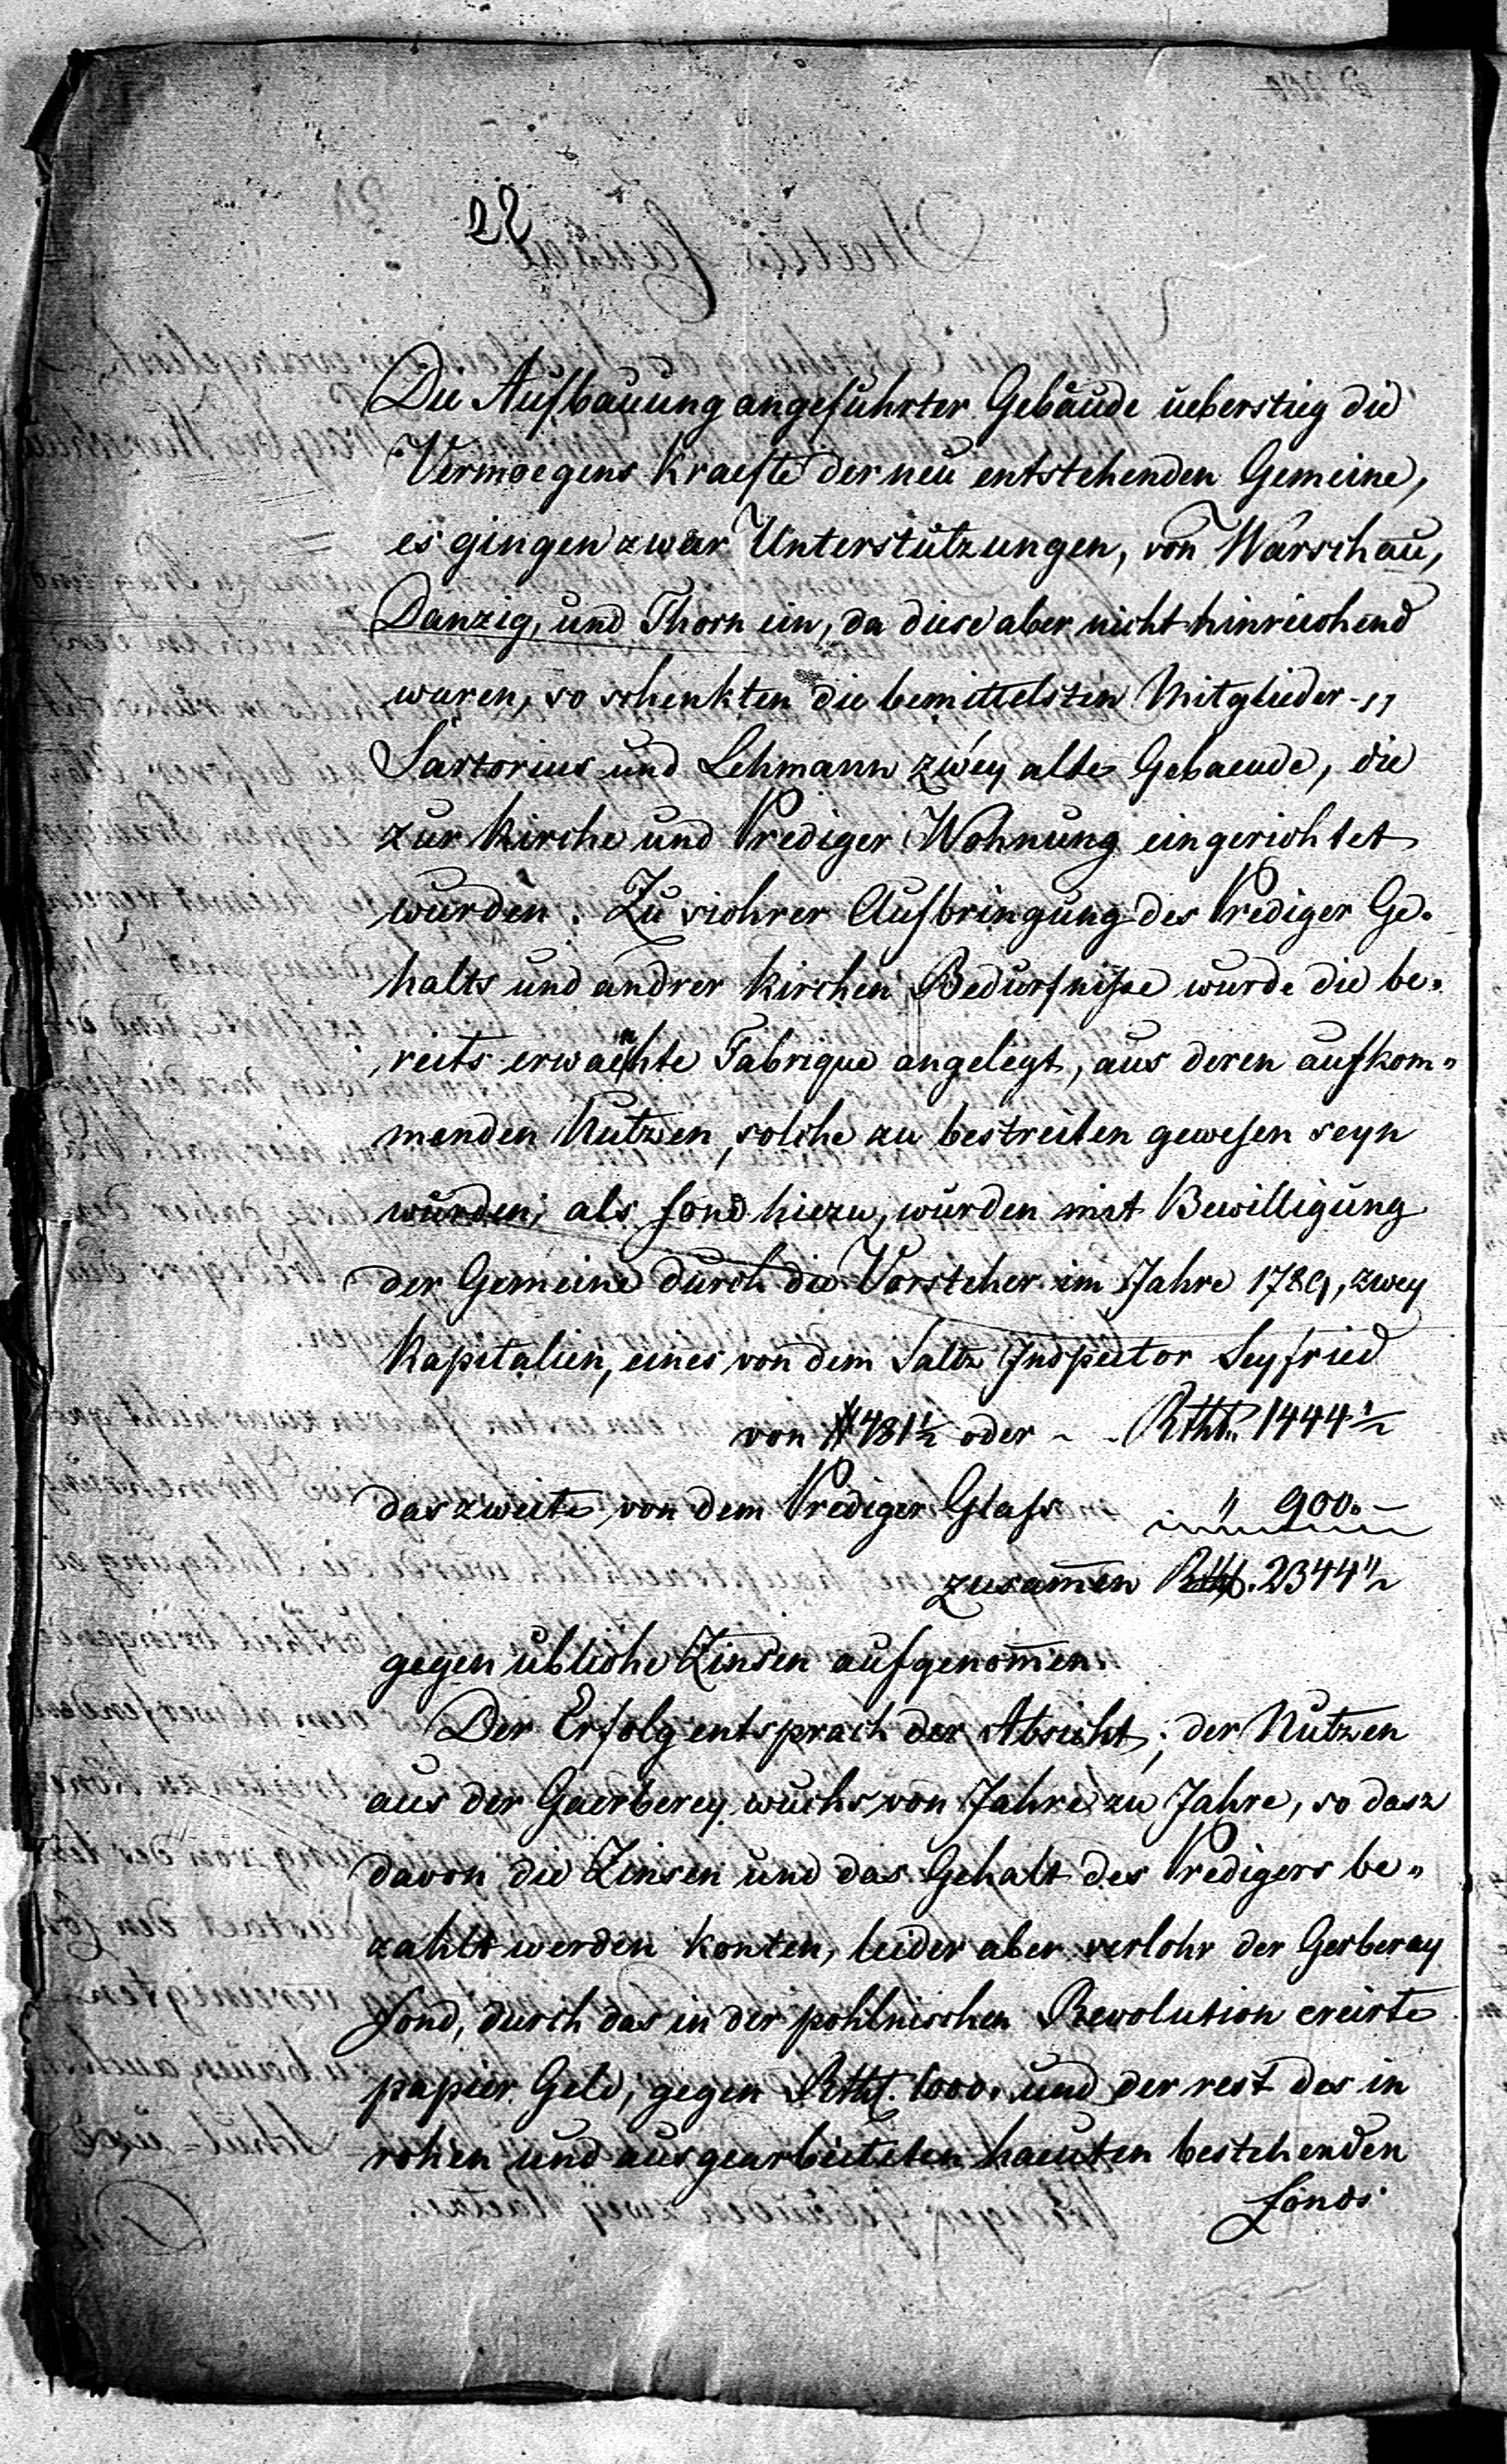 22
Die Aufbauung angefuhrter Gebäude ueberstieg die
Vermoegens Kraefte der neu entstehenden Gemeine,
es gingen zwar Unterstützungen, von Warschau,
Danzig, und Thorn ein, da diese aber nicht hinreichend
waren, so schenkten die bemittelsten Mitglieder
Sartorius und Lehmann zwey alte Gebaeude, die
zur Kirche und Prediger Wohnung eingerichtet
wurden. Zu sichrer Aufbringung des Prediger Ge-
halts und andrer Kirchen Bedürfniße wurde die be-
reits erwaehnte Fabrique angelegt, aus deren aufkom-
menden Nutzen, solche zu bestreiten gewesen seyn
würden; als fond hiezu, wurden mit Bewilligung
der Gemeine durch die Vorsteher im Jahre 1789, zwey
Kapitalien, eines von dem Saltz Inspector Seyfried
von # 481½ oder - - Rthl. 1444½
das zweite von dem Prediger Glass " 900. -
zusam̄en Rthl. 2344½
gegen ubliche Zinsen aufgenom̄en.
Der Erfolg entsprach der Absicht; der Nutzen
aus der Gaerberey wuchs von Jahre zu Jahre, so dasz
davon die Zinsen und das Gehalt des Predigers be-
zahlt werden konten, leider aber verlohr der Gerberey
fond, durch das in der pohlnischen Revolution creirte
papier Geld, gegen Rthl. 1000. und der rest des in
rohen und ausgearbeiteten haeuten bestehenden
fonds